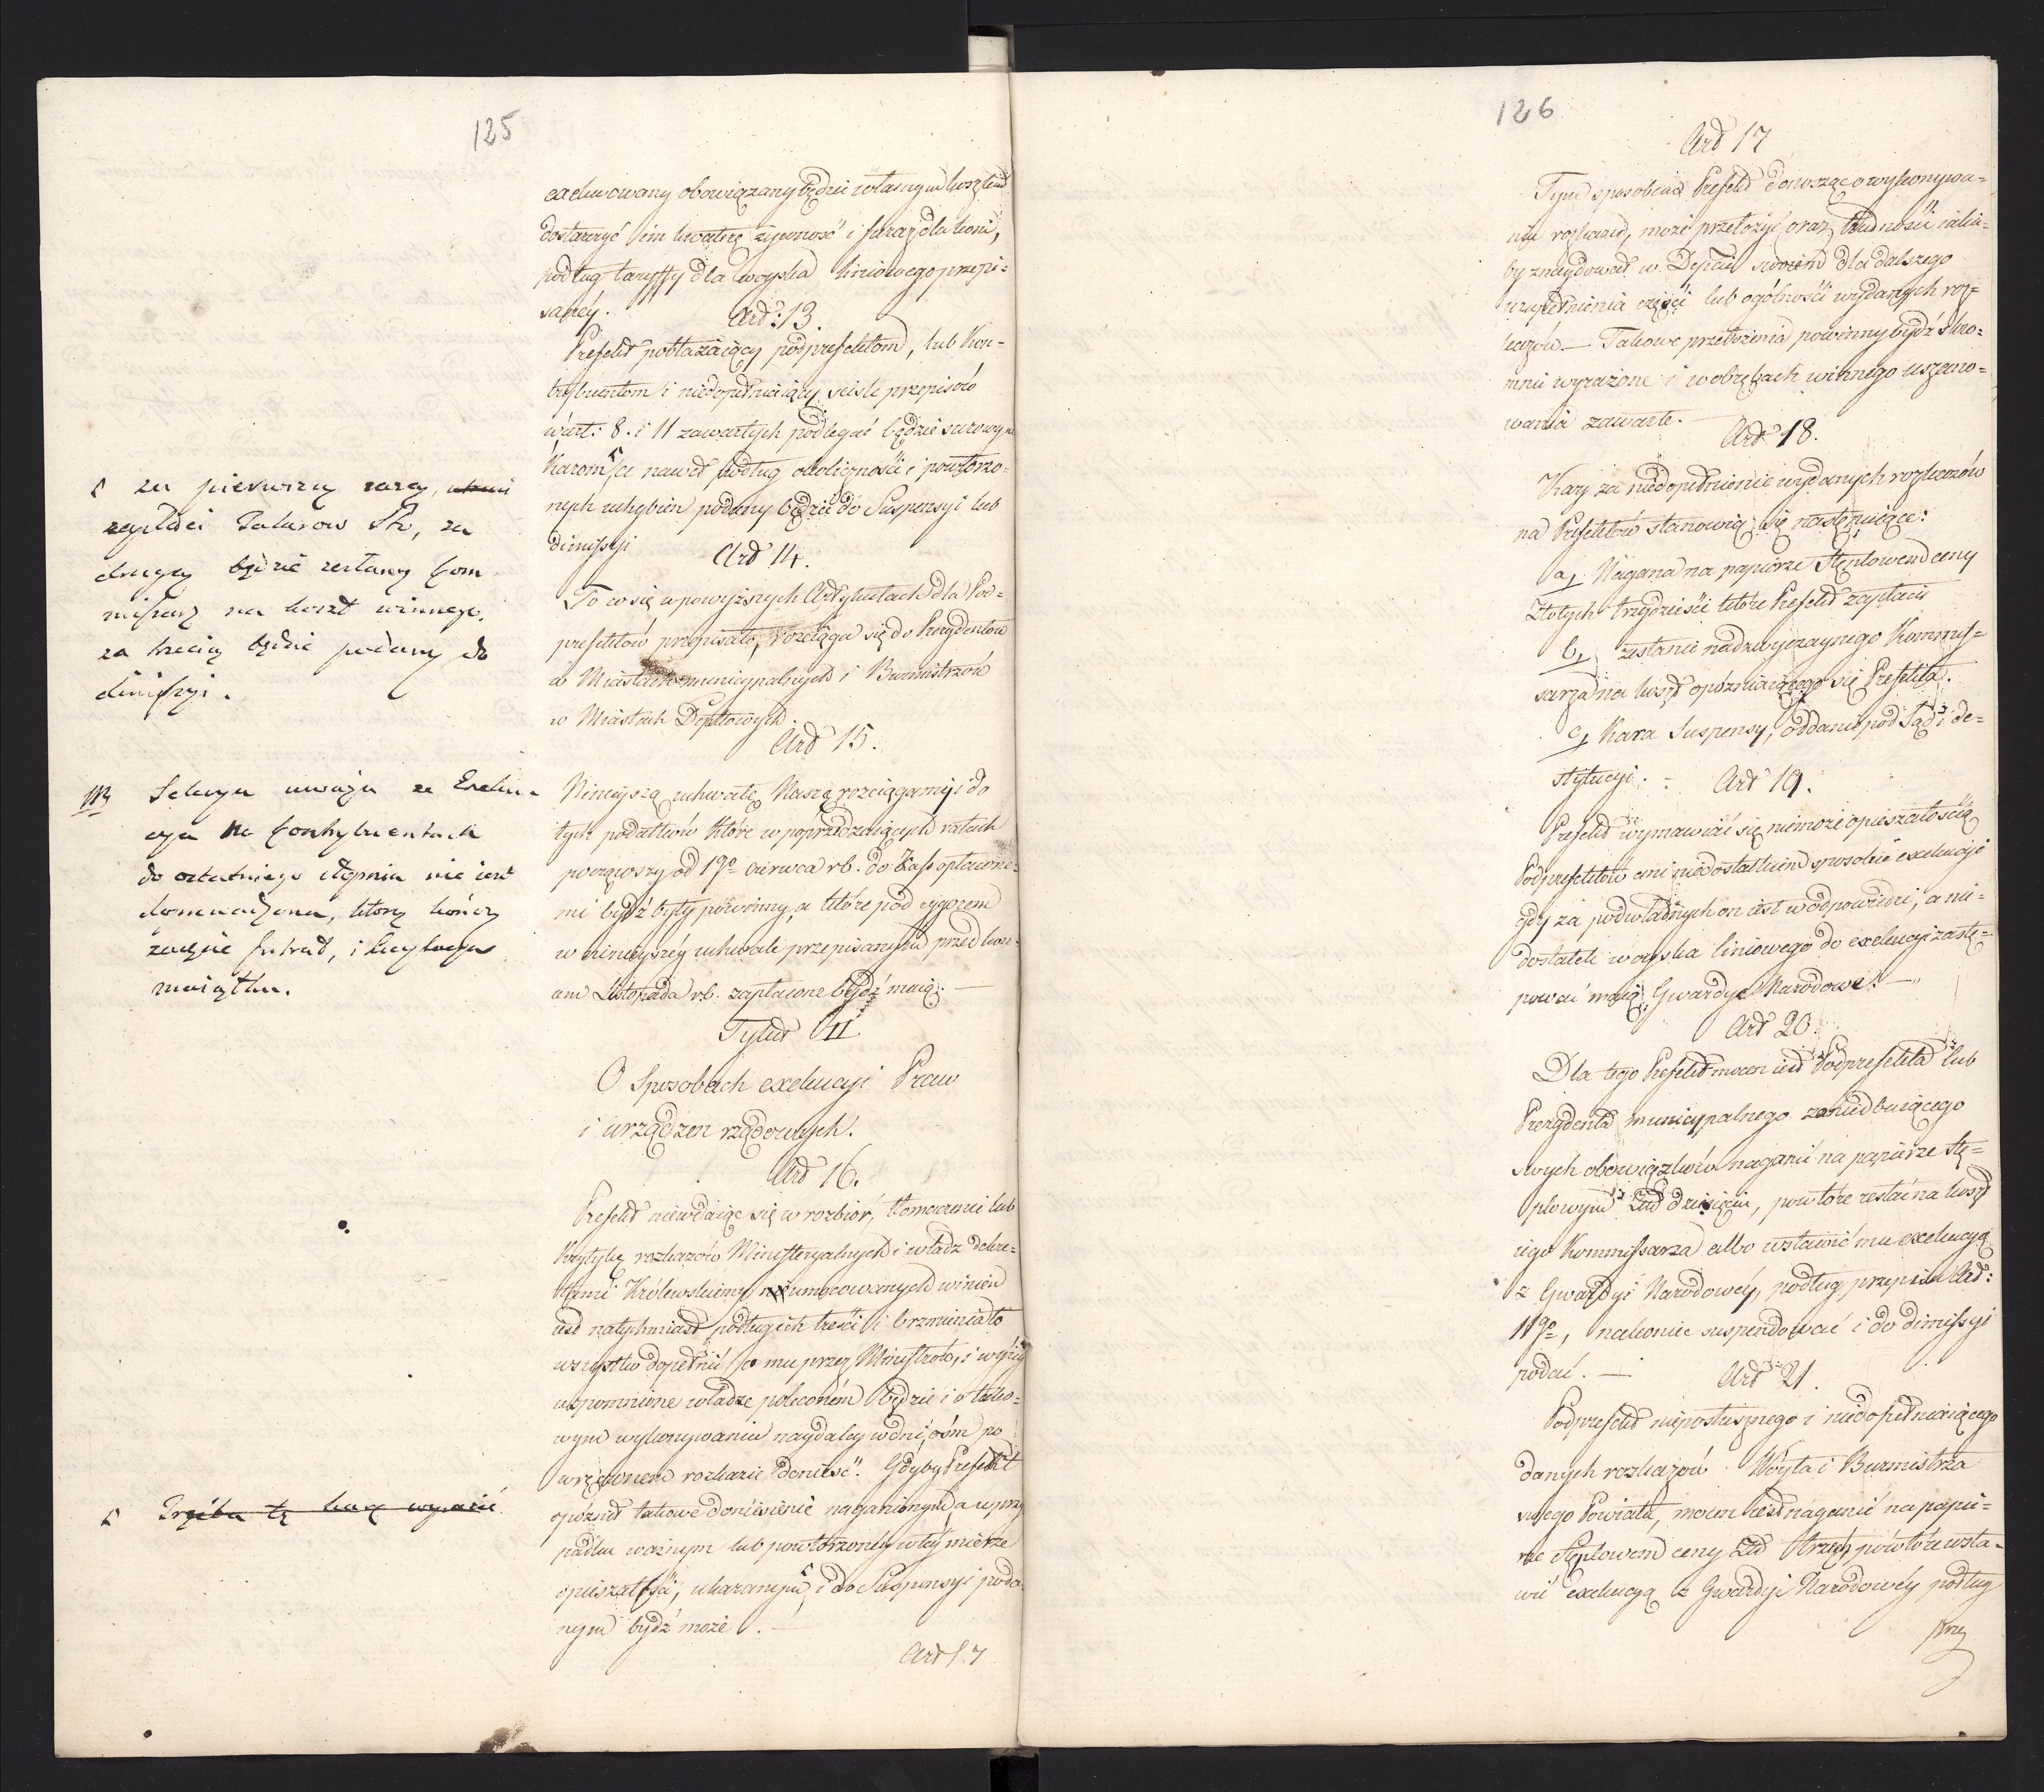 125
exekwowany obowiązany będzie własnym kosztem
dostarczyć im kwaterę żywność i furaż dla koni,
podług taryffy dla woyska liniowego przepi=
saney.
Art: 13.
Prefekt pobłażaiący podprefektom, lub Kon=
trybuentom i niedopełniaiący ściśle przepisów
w art: 8. i 11 zawartych podlegać będzie surowym
Karom a nawet podług okoliczności i powtorzo=
nych uchybien podany będzie do Suspensyi lub
dimissyi
Art 14.
To co się w powyższych Artykułach dla Pod=
prefektów przepisało, rozciąga się do Prezydentów
w Miastach municypalnych i Burmistrzów
w Miastach Deptowych.
Art 15.
Ninieyszą uchwałę Naszą rozciągamy i do
tych podatków które w poprzedzaiących ratach
począwszy od 1go czerwca rb. do Kass opłacone=
mi bydź były powinny, a które pod rygorem
w ninieyszey uchwale przepisanym przed koń=
cem Listopada rb. zapłacone bydź maią. —
Tytuł II
O Sposobach exekucyi Praw
i urządzen rządowych.
Art 16.
Prefekt niewdaiąc się w rozbiór, tłomaczenie lub
Krytykę rozkazów Ministeryalnych i władz dekre=
tami Królewskiemi umocowanych winien
iest natychmiast podług ich treści i brzmienia to
wszystko dopełnić co mu przez Ministrów, i wyżey
wspomnione władze poleconém będzie i o tako=
wym wykonywaniu naydaley w dni ośm po
wręczonem rozkazie donieść. Gdyby Prefekt
opóźnił takowe doniesienie naganionym, a w przy
padku ważnym lub powtorzoney w tey mierze
opieszałości, ukaranym i do Suspensyi poda=
nym bydź może. —
Art 17
za pierwszą razą,
zapłaci Talarow Sto, za
drugą będzie zesłany Kom
missarz na koszt winnego.
za trzecią będzie podany do
dimissyi.
NB Sekcya uważa że Exeku=
cya na kontrybuentach
do ostatniego stopnia nie iest
domowadzona, który kończy
zaięcie intrat, i licytacya
maiątku.
Trzeba tę karę wyrazić
126
Art 17
Tym sposobem Prefekt donosząc o wykonywa=
niu rozkazu, może przełożyć oraz trudności iakie=
by znaydował w Depcie swoim dla dalszego
uzupełnienia części lub ogólności wydanych roz=
kazów. — Takowe przełożenia powinny bydź skro=
mnie wyrażone i w obrębach winnego uszano=
wania zawarte. —
Art 18.
Kary za niedopełnienie wydanych rozkazów
na Prefektów stanowią się następuiące:
a, Nagana na papiorze Stęplowem ceny
Złotych trzydzieści które Prefekt zapłaci
b, zesłanie nadzwyczaynego Kommis=
sarza na koszt opózniaiącego się Prefekta.
c, Kara Suspensy, oddania pod Sąd i de=
stytucyi. =
Art 19.
Prefekt wymawiać się niemoże opieszałością
Podprefektów ani niedostatkiem sposobie exekucyi
gdyż za podwładnych on iest w odpowiedzi, a nie=
dostatek woyska liniowego do exekucyi zastę=
pować maią Gwardye Narodowe. —
Art 20.
Dla tego Prefekt mocen iest Podprefekta lub
Prezydenta municypalnego zaniedbuiącego
swych obowiązków naganić na papierze stę=
plowym Złł dziesięciu, powtóre zesłać na koszt
iego Kommissarza albo wstawić mu exekucyą
z Gwardyi Narodowey, podług przepisu Art:
11go, nakoniec suspendować i do dimissyi
podać. —
Art 21.
Podprefekt nieposłusznego i niedopełniaiącego
danych rozkazów Wóyta i Burmistrza
swego Powiatu, mocen iest naganić na papie=
rze stęplowem ceny Złł trzech, powtóre wsta=
wić exekucyą z Gwardyi Narodowey podług
Prze